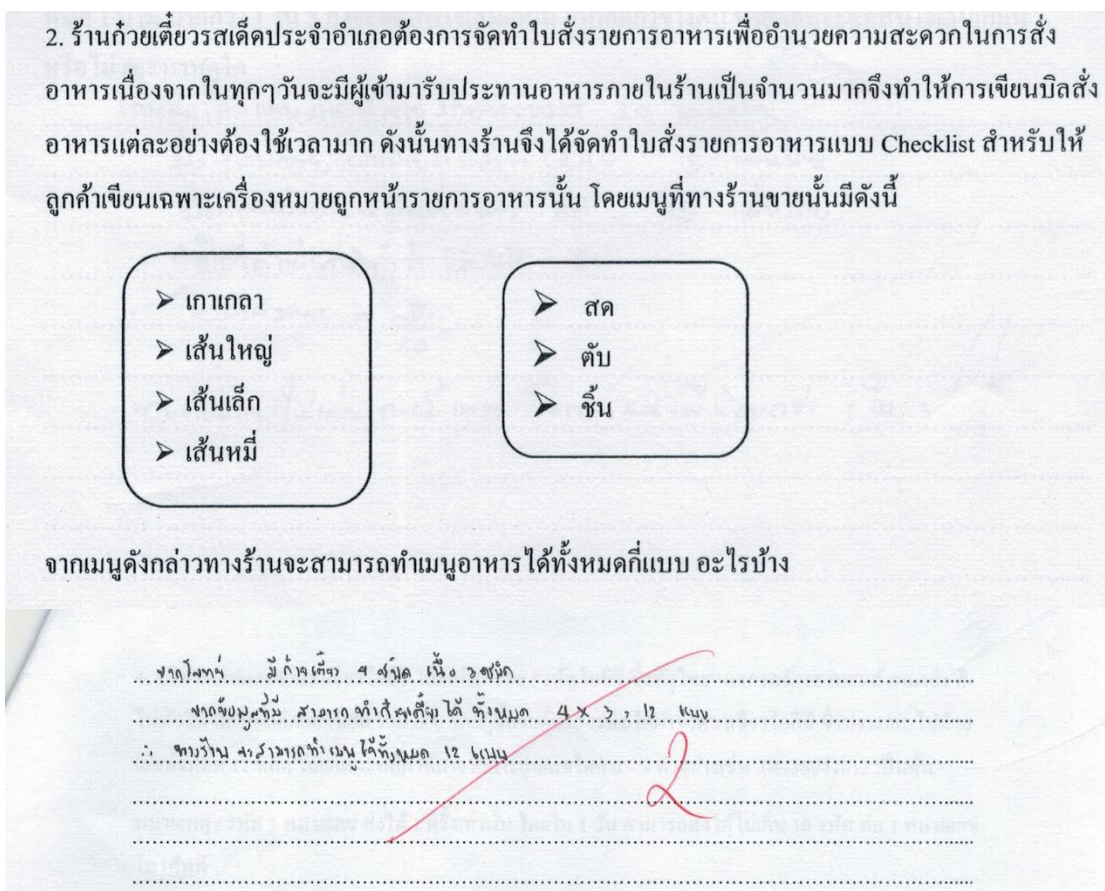 2. ร้านก๋วยเตี๋ยวรสเด็ดประจำอำเภอต้องการจัดทำใบสั่งรายการอาหารเพื่ออำนวยความสะดวกในการสั่ง
อาหารเนื่องจากในทุกๆวันจะมีผู้เข้ามารับประทานอาหารภายในร้านเป็นจำนวนมากจึงทำให้การเขียนบิลสั่ง
อาหารแต่ละอย่างต้องใช้เวลามาก ดังนั้นทางร้านจึงได้จัดทำใบสั่งรายการอาหารแบบ Checklist สำหรับให้
ลูกค้าเขียนเฉพาะเครื่องหมายถูกหน้ารายการอาหารนั้น โดยเมนูที่ทางร้านขายนั้นมีดังนี้
เกาเกลา
เส้นใหญ่
เส้นเล็ก
เส้นหมี่
สด
ตับ
ชิ้น
จากเมนูดังกล่าวทางร้านจะสามารถทำเมนูอาหารได้ทั้งหมดกี่แบบ อะไรบ้าง
จากโจทย์ มีก๋วยเตี๋ยว 4 ชนิด เนื้อ 3 ชนิด
จากข้อมูลที่มี สามารถทำก๋วยเตี๋ยวได้ ทั้งหมด 4 × 3 = 12 แบบ
∴ ทางร้าน จะสามารถทำเมนูได้ทั้งหมด 12 แบบ
2